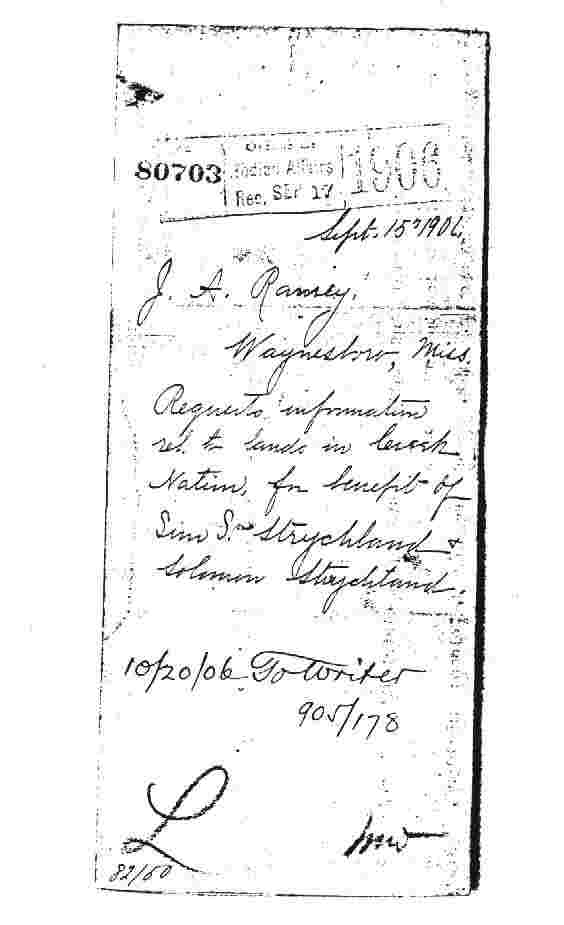 80703
Office of
Indian Affairs
Rec. SEP 17
1906
Sept. 15" 1906.
J. A. Ramsey.
Waynesboro, Miss.
Requests information
rel. to lands in Creek
Nation, for benefit of
Sim S. Strychland &
Solomon Strychland.
10/20/06 To Writer
905/178
L
82/60